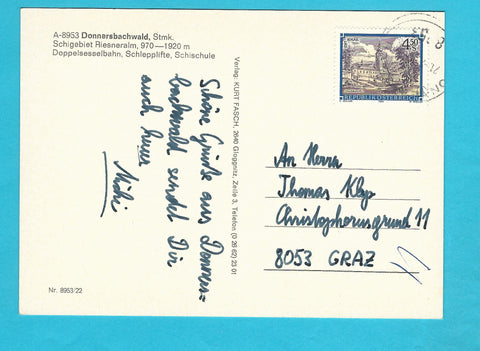 A-8953 Donnersbachwald, Stmk.
Schigebiet Riesneralm, 970—1920 m
Doppelsesselbahn, Schlepplifte, Schischule
Schöne Grüße aus Donners=
bachwald sendet Dir
auch heuer
Michi
Nr. 8953/22
Verlag: KURT FASCH, 2640 Gloggnitz, Zeile 3, Telefon (0 26 62) 23 01
4.50
REPUBLIK ÖSTERREICH
An Herrn
Thomas
Christophorusgrund 11
8053 GRAZ